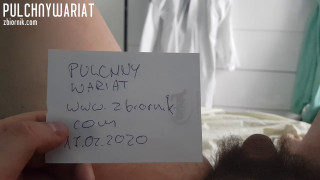 PULCHNYWARIAT
zbiornik.com
PULCHNY
WARIAT
www.zbiornik
.com
17.02.2020